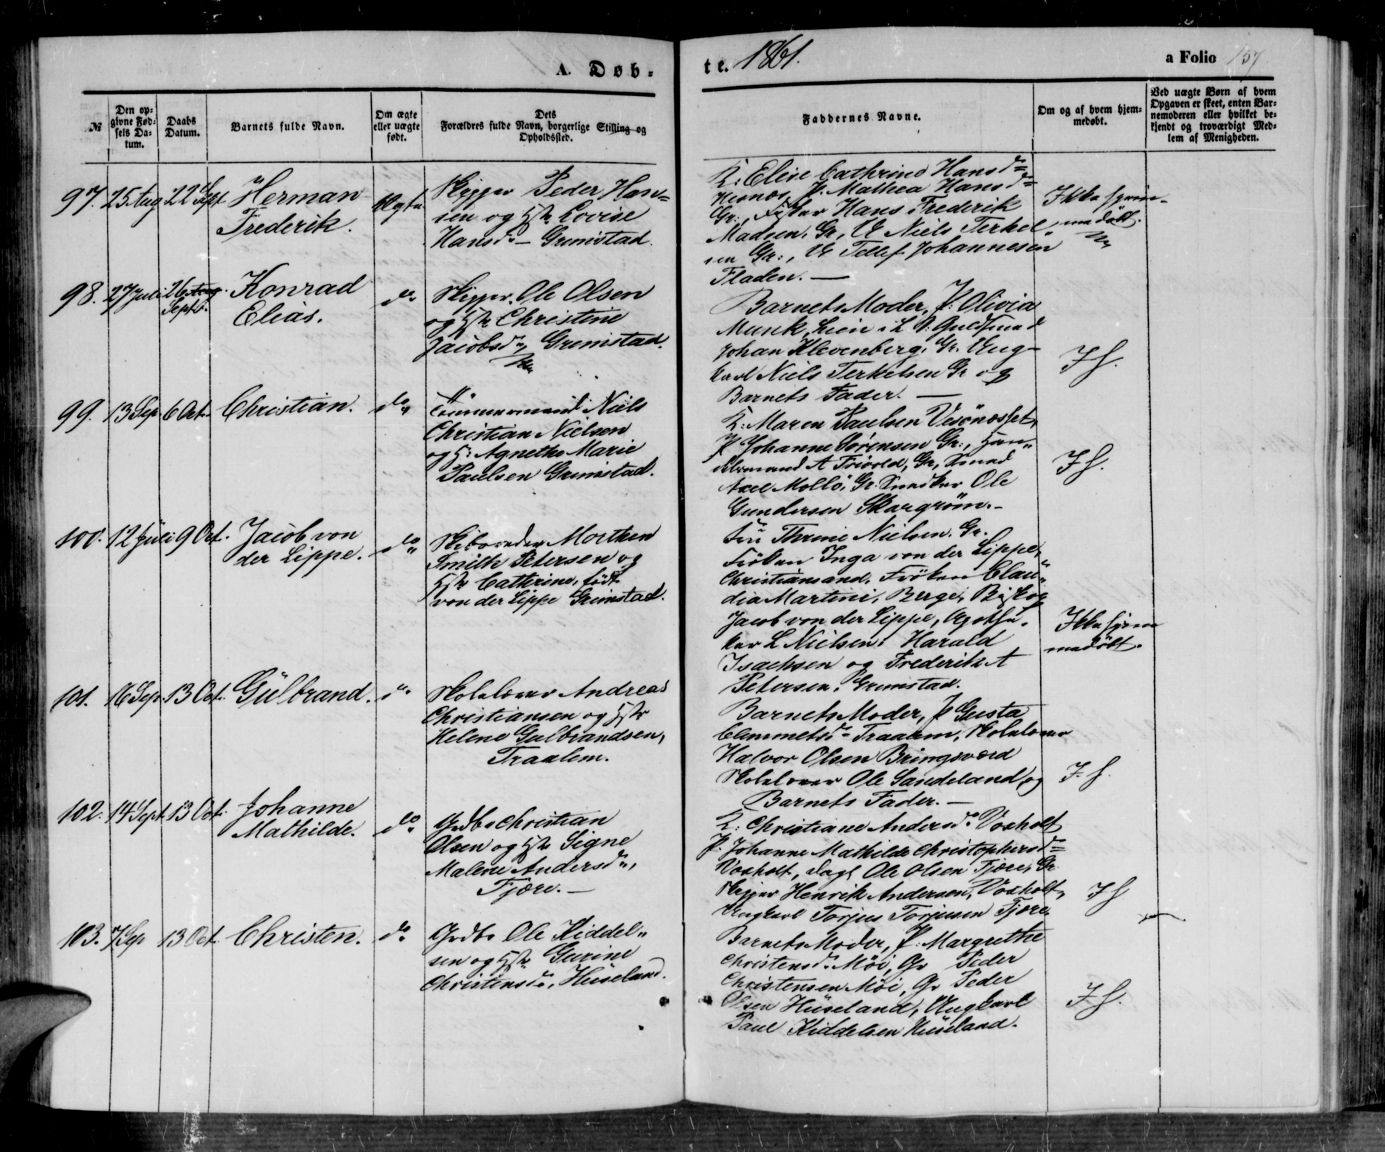 A. Døb-
te. 1861.
a Folio 157
№
Den op-
givne Fød-
sels Da-
tum.
Daabs
Datum.
Barnets fulde Navn.
Om ægte
eller uægte
født.
Dets
Forældres fulde Navn, borgerlige Stilling og
Opholdssted.
Faddernes Navne.
Om og af hvem hjem-
medøbt.
Ved uægte Børn af hvem
Opgaven er skeet, enten Bar-
nemoderen eller hvilket be-
kjendt og troværdigt Med-
lem af Menigheden.
97. 25 Aug 22 Sept Herman
Frederik.
Ægte
Skipper Peder Han-
sen og Hst Lovise
Hansdr – Grimstad.
K: Elise Cathrine Hansdr
Hesnæs, P. Mathea Hansdr
Gr., Fisker Hans Frederik
Madsen, Gr, U Niels Terkel-
sen Gr:, U Tellef Johannesen
Fladen. —
Ikke hjem-
medøbt.
98. 27 Juli Sept. Konrad
Elias.
do
Skipper Ole Olsen
og Hst Christine
Jacobsdr Grimstad.
Barnets Moder, P. Olivia
Munk, Guldsmed
Johan Klevenberg, Gr. Ung-
karl Niels Terkelsen Gr og
Barnets Fader. —
I H.
99. 13 Sep 6 Oct. Christian.
do
Tømmermand Niels
Christian Nielsen
og H: Agnethe Marie
Paulsen Grimstad.
K: Maren Paulsen Vesønæsset,
P Johanne Sørensen Gr., Han-
delsmand A Gr, Smed
Axel Gr. Snedker Ole
Gundersen
I H.
100. 12 Juli 9 Oct. Jacob von
der Lippe.
do
Skibsreder Morthen
Smith Petersen og
Hst Cathrine, født
von der Lippe Grimstad.
Fru Thrine Nielsen. Gr.
Frøken Inga von der Lippe,
Christiansand, Frøken Clau-
dia Martini, Bergen, Biskop
Jacob von der Lippe,
L Nielsen, Harald
Isachsen og Frederik A
Petersen, Grimstad.
Ikke hjem
medøbt.
101. 16 Sep 13 Oct. Gulbrand.
do
Skolelærer Andreas
Christiansen og Hst
Helene Gulbrandsen,
Traalem.
Barnets Moder, P Gusta
Clemmetsdr Traalem, Skolelærer
Halvor Olsen Bringsværd
Skolelærer Ole Sandeland og
Barnets Fader. —
I. H.
102. 14 Sept. 13 Oct. Johanne
Mathilde.
do
Gdbr Christian
Olsen og Hst Signe
Malene Andersdr,
Fjære. —
K: Christiane Andersdr Voxholt
P. Johanne Mathilde Christophersdr
Voxholt, Ole Olsen Fjære, Gr
Skipper Henrik Andersen, Voxholt,
Ungkarl Torjus Torjusen Fjære.
I H
103. 7 Sep 13 Oct. Christen.
do
Gdbr Ole Kiddel-
sen og Hst Gurine
Christensdr, Huseland.
Barnets Moder, P. Margrethe
Christensdr Møi, Gr Peder
Christensen Møi, Gr Peder
Olsen Huseland, Ungkarl
Paul Kiddelsen Huseland.
I H.